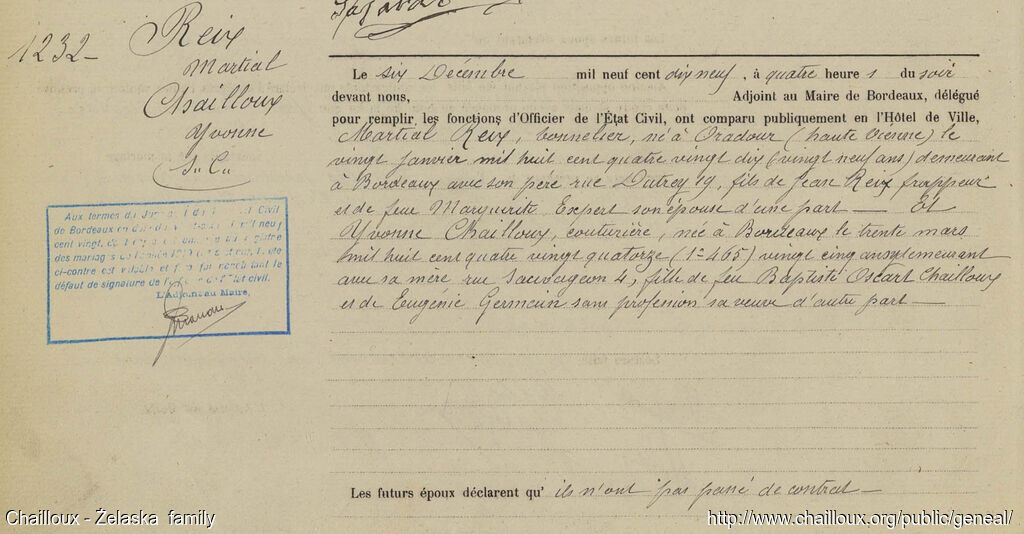 1232-
Reix
Martial
Chailloux
Yvonne
Aux termes du
de Bordeaux en
cent vingt,
des mariages
ci-contre est valable et
défaut de signature de l'
L'Adjoint au Maire,
Le six Décembre mil neuf cent dix neuf, à quatre heures du soir
devant nous, Adjoint au Maire de Bordeaux, délégué
pour remplir les fonctions d'Officier de l'État Civil, ont comparu publiquement en l'Hôtel de Ville,
Martial Reix, tonnelier, né à Oradour (haute Vienne) le
vingt janvier mil huit cent quatre vingt dix (vingt neuf ans) demeurant
à Bordeaux avec son père rue Dutrey 19, fils de Jean Reix frappeur
et de feue Marguerite Expert son épouse d'une part — Et
Yvonne Chailloux, couturière, née à Bordeaux le trente mars
mil huit cent quatre vingt quatorze (1re 465) vingt cinq ans demeurant
avec sa mère rue Sauvageon 4, fille de feu Baptiste Oscart Chailloux
et de Eugénie Germain sans profession sa veuve d'autre part —
Les futurs époux déclarent qu'ils n'ont pas passé de contrat —
Chailloux - Żelaska family
http://www.chailloux.org/public/geneal/